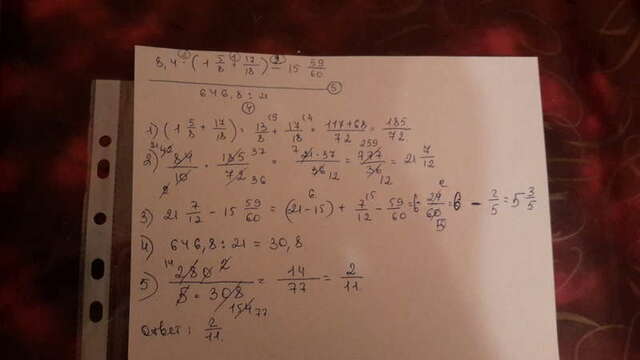 8,4 · (1 5/8 + 17/18) − 15 59/60
646,8 : 21
1) (1 5/8 + 17/18) = 13/8 + 17/18 = 117+68/72 = 185/72
2) 84/10 · 185/72 = 21·37/36 = 777/36 = 21 7/12
3) 21 7/12 − 15 59/60 = (21−15) + 7/12 − 59/60 = 6 − 24/60 = 6 − 2/5 = 5 3/5
4) 646,8 : 21 = 30,8
5) 280 2/5 · 308 = 14/77 = 2/11.
Ответ: 2/11.